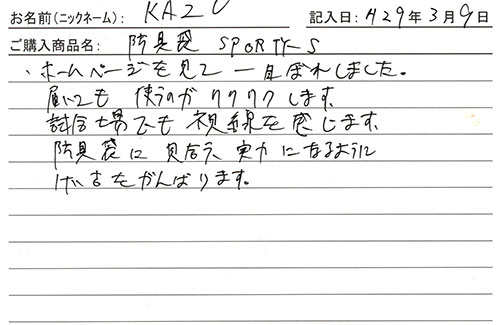 お名前(ニックネーム): KAZU 記入日: H29年3月9日
ご購入商品名: 防具袋 SPORTY-S
、ホームページを見て一目ぼれしました。
届いても 使うのがワクワクします
試合場でも 視線を感じます
防具袋に 見合う、実力になるように
けい古をがんばります。